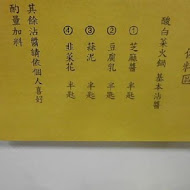 酸白菜火鍋 基本沾醬
① 芝麻醬 一匙
② 豆腐乳 半匙
③ 蒜泥 半匙
④ 韭菜花 半匙
其餘沾醬請依個人喜好
酌量加料